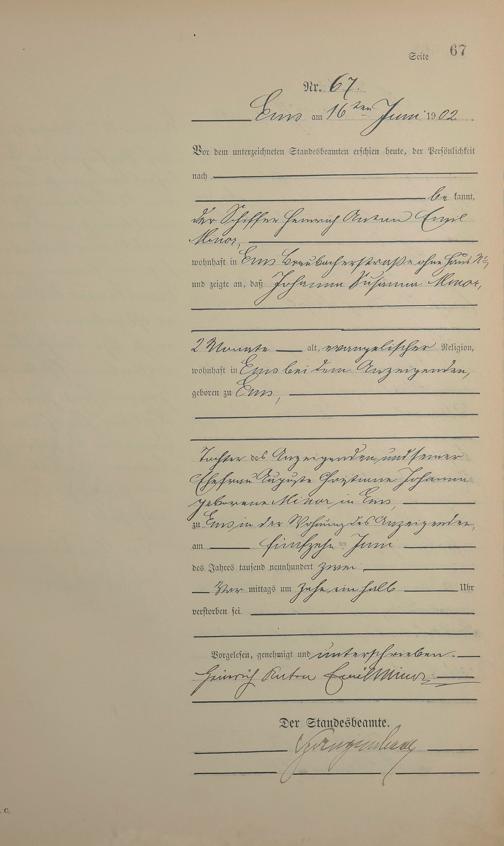 Seite 67
Nr. 67.
Ems am 16ten Juni 1902
Vor dem unterzeichneten Standesbeamten erschien heute, der Persönlichkeit
nach
bekannt,
der Schiffer Heinrich Anton Emil
Minor,
wohnhaft in Ems Braubacherstraße ohne Haus Nr,
und zeigte an, daß Johanna Susanna Minor,
2 Monate alt, evangelischer Religion,
wohnhaft in Ems bei dem Anzeigenden,
geboren zu Ems,
Tochter des Anzeigenden und seiner
Ehefrau Auguste Christiane Johanna
geborene Minor in Ems,
zu Ems in der Wohnung des Anzeigenden,
am fünfzehn Juni
des Jahres tausend neunhundert zwei
Vor mittags um zehn ein halb Uhr
verstorben sei.
Vorgelesen, genehmigt und unterschrieben.
Heinrich Anton Emil Minor
Der Standesbeamte.